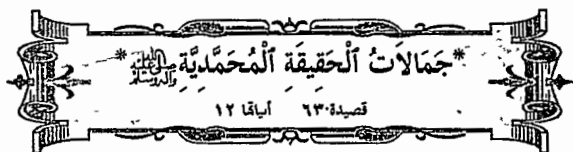 *جَمَالَاتُ ٱلْحَقِيقَةِ ٱلْمُحَمَّدِيَّةِ ﷺ*
قصيدة ٦٣٠ أبياتها ١٢